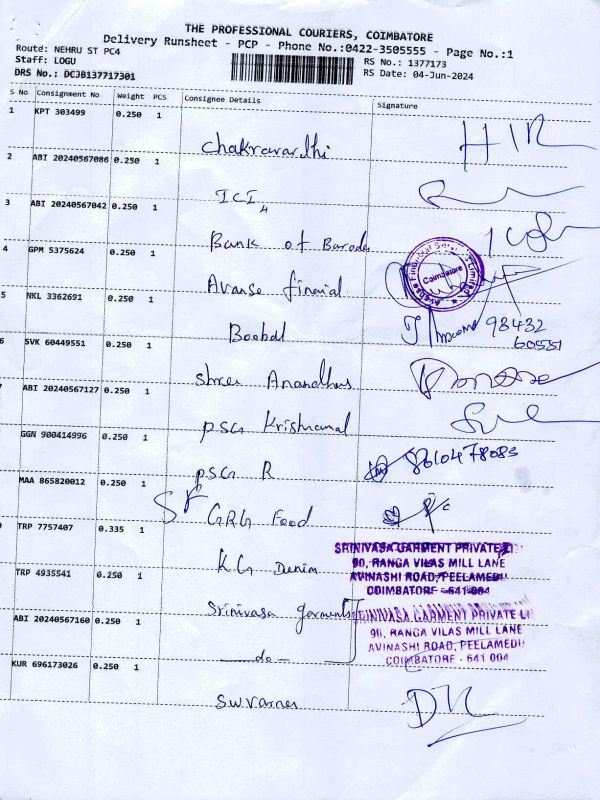 THE PROFESSIONAL COURIERS, COIMBATORE
Delivery Runsheet - PCP - Phone No.:0422-3505555 - Page No.:1
Route: NEHRU ST PC4
Staff: LOGU
DRS No.: DCJB137717301
RS No.: 1377173
RS Date: 04-Jun-2024
S No Consignment No Weight PCS Consignee Details Signature
1 KPT 303499 0.250 1 Chakravardhi
2 ABI 20240567086 0.250 1 ICI
3 ABI 20240567042 0.250 1 Bank of Baroda
4 GPM 5375624 0.250 1 Avanse finncial
Coimbatore
5 NKL 3362691 0.250 1 Boobal 98432
60551
6 SVK 60449551 0.250 1 Shree Anandhas
ABI 20240567127 0.250 1 PSG Krishnamal
GGN 900414996 0.250 1 PSG R 8610478083
MAA 865820012 0.250 1 GRG Food
TRP 7757407 0.335 1 KG Denim
TRP 4935541 0.250 1 Srinivasa garments
SRINIVASA GARMENT PRIVATE LI
90, RANGA VILAS MILL LANE
AVINASHI ROAD, PEELAMEDU
COIMBATORE - 641 004
ABI 20240567160 0.250 1 -do-
SRINIVASA GARMENT PRIVATE LI
90, RANGA VILAS MILL LANE
AVINASHI ROAD, PEELAMEDU
COIMBATORE - 641 004
KUR 696173026 0.250 1 Suvarnes